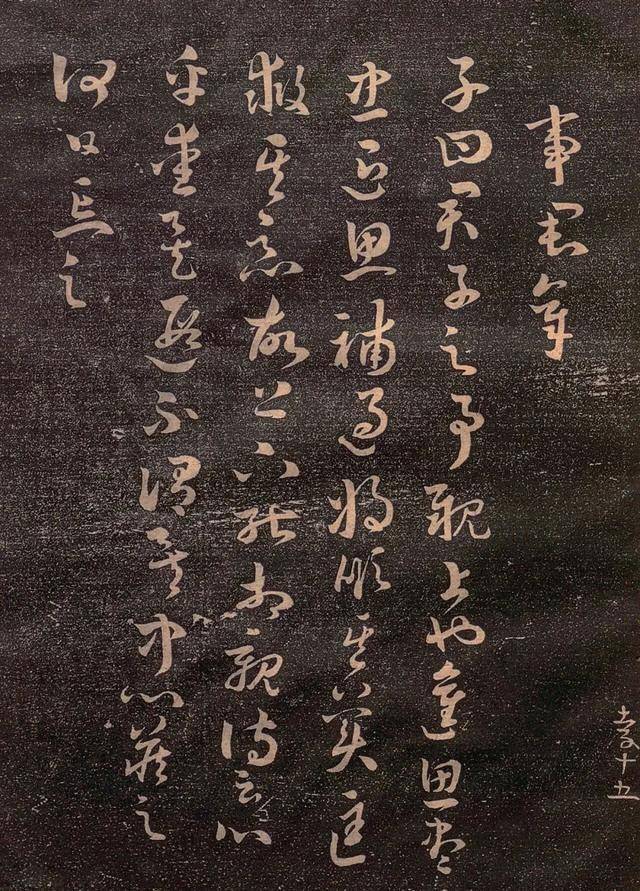 孝十五
事君章
子曰君子之事親上也進思盡
忠退思補過將順其美匡
救其惡故上下能相親詩云心
乎愛矣遐不謂矣中心藏之
何日忘之